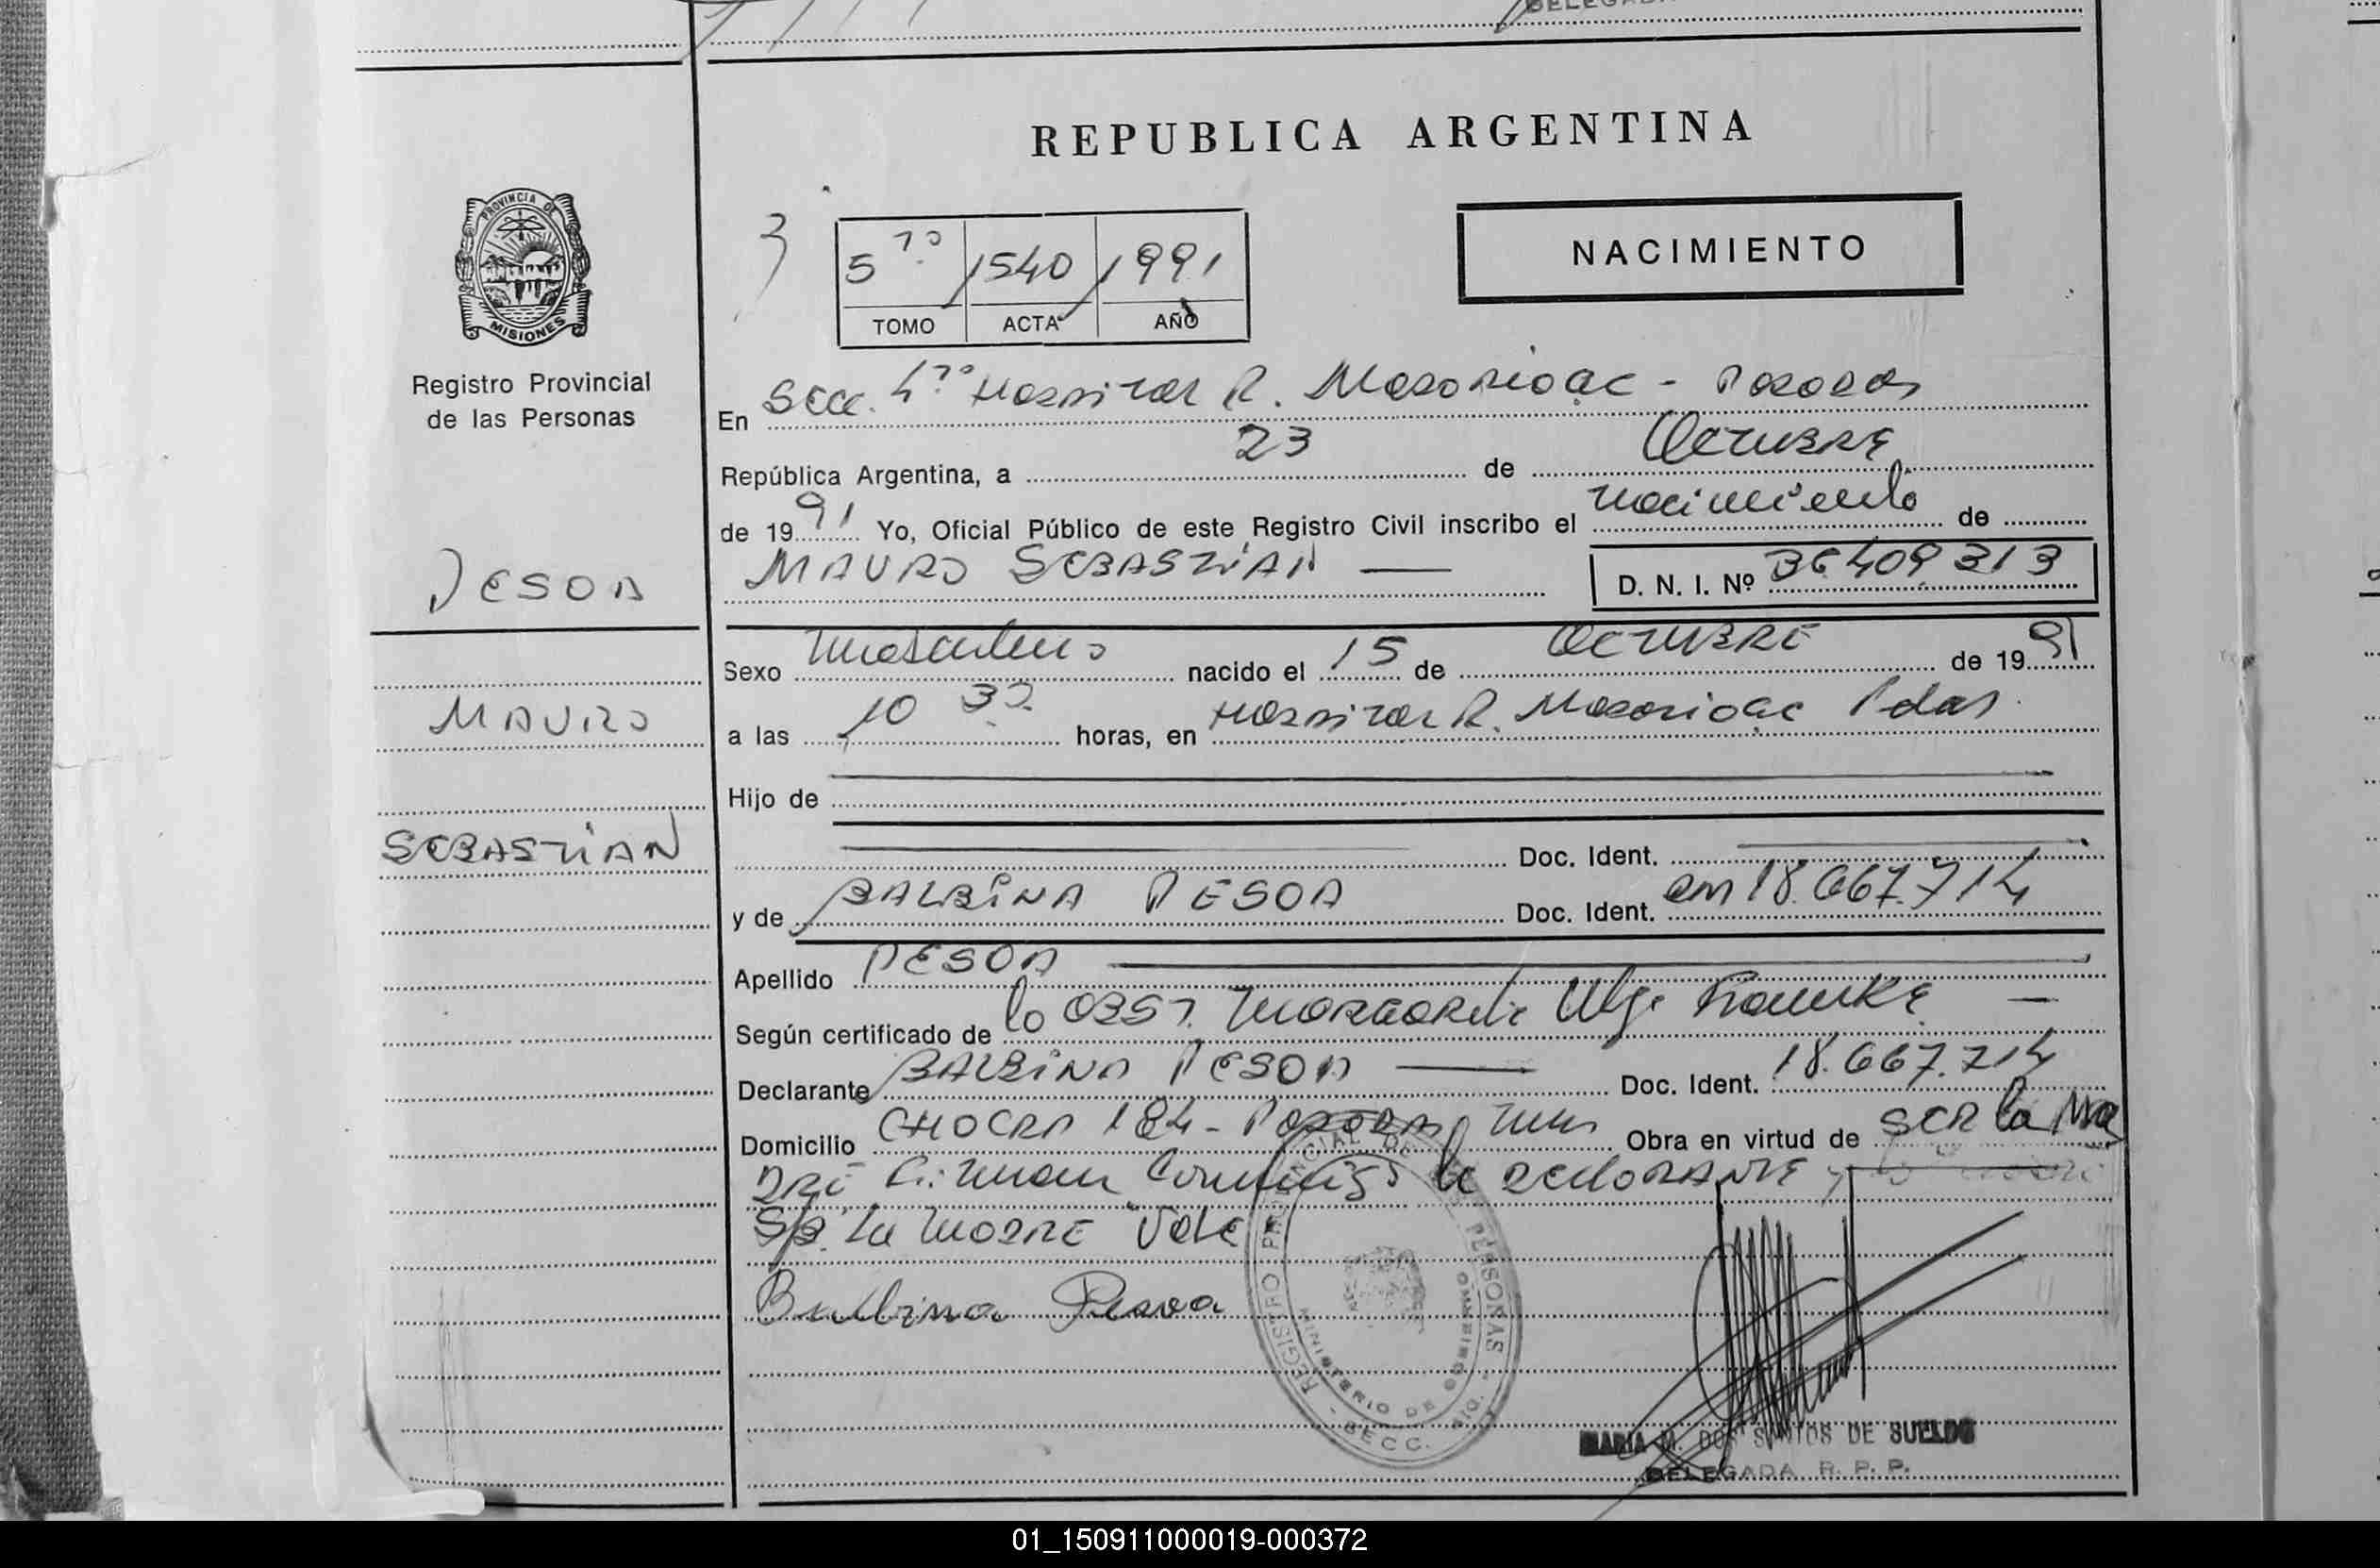 REPUBLICA ARGENTINA
PROVINCIA DE
MISIONES
Registro Provincial
de las Personas
3
5to 1540 1991
TOMO ACTA AÑO
NACIMIENTO
En Secc. 4ta Hospital R. Madariaga - Posadas
República Argentina, a 23 de Octubre
de 1991 Yo, Oficial Público de este Registro Civil inscribo el nacimiento de
PESOA
MAURO SEBASTIAN
D. N. I. Nº 36409313
Sexo masculino nacido el 15 de Octubre de 1991
MAURO
a las 10 30 horas, en Hospital R. Madariaga Pdas.
Hijo de
SEBASTIAN
Doc. Ident.
y de BALBINA PESOA Doc. Ident. 18.667.714
Apellido PESOA
Según certificado de la OBST. Olga
Declarante BALBINA PESOA Doc. Ident. 18.667.714
Domicilio CHACRA 184 - Posadas Obra en virtud de SER la Ma
DRE Firman la DECLARANTE
La MADRE Vale
Balbina Pesoa
REGISTRO PROVINCIAL DE PERSONAS
MINISTERIO DE GOBIERNO
SECC.
MARIA M. DOS SANTOS DE SUELDO
DELEGADA R. P. P.
01_150911000019-000372